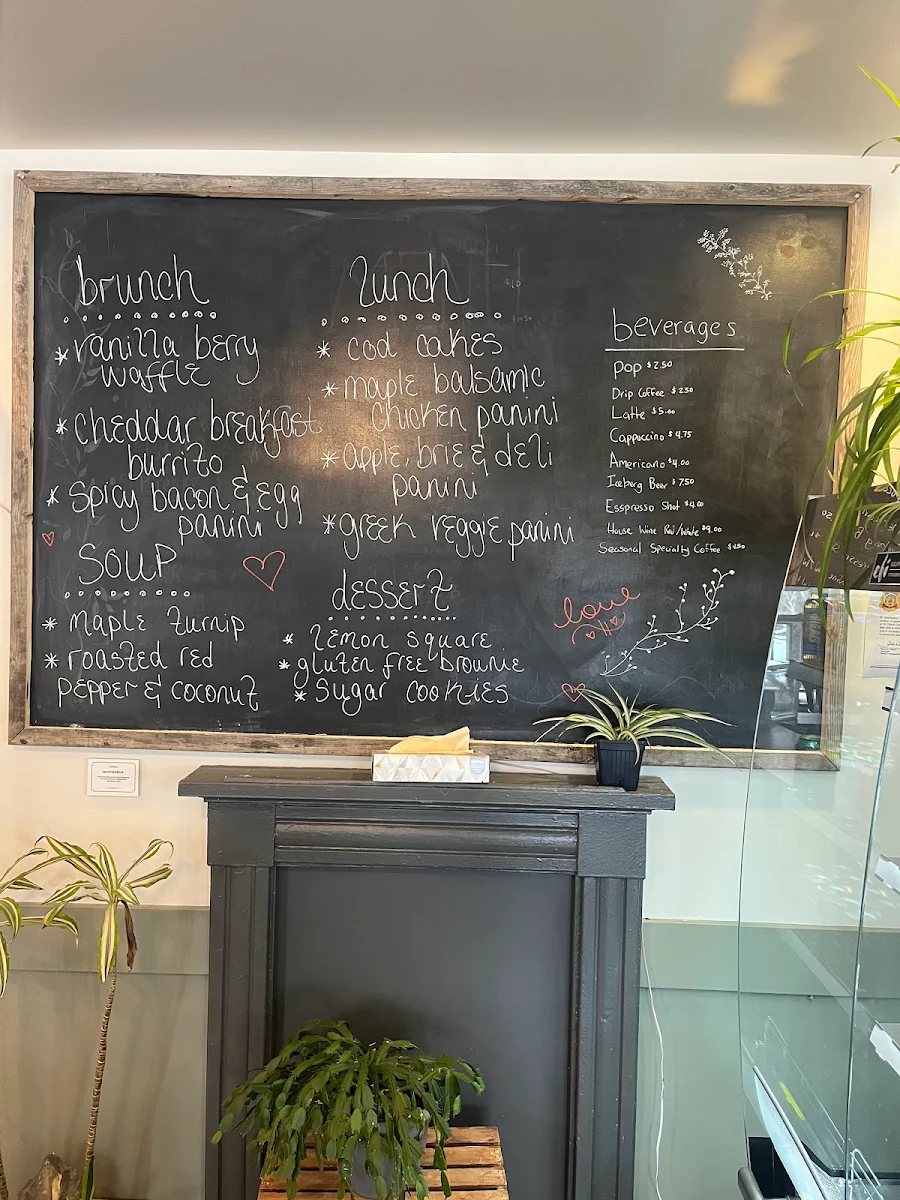 brunch
* vanilla berry
waffle
* cheddar breakfast
burrito
* spicy bacon & egg
panini
soup
* maple turnip
* roasted red
pepper & coconut
lunch
* cod cakes
* maple balsamic
chicken panini
* apple, brie & deli
panini
* greek veggie panini
dessert
* lemon square
* gluten free brownie
* sugar cookies
beverages
Pop $2.50
Drip Coffee $2.50
Latte $5.00
Cappuccino $4.75
Americano $4.00
Iceberg Beer $7.50
Esspresso Shot $4.00
House Wine Red/White $9.00
Seasonal Specialty Coffee
love